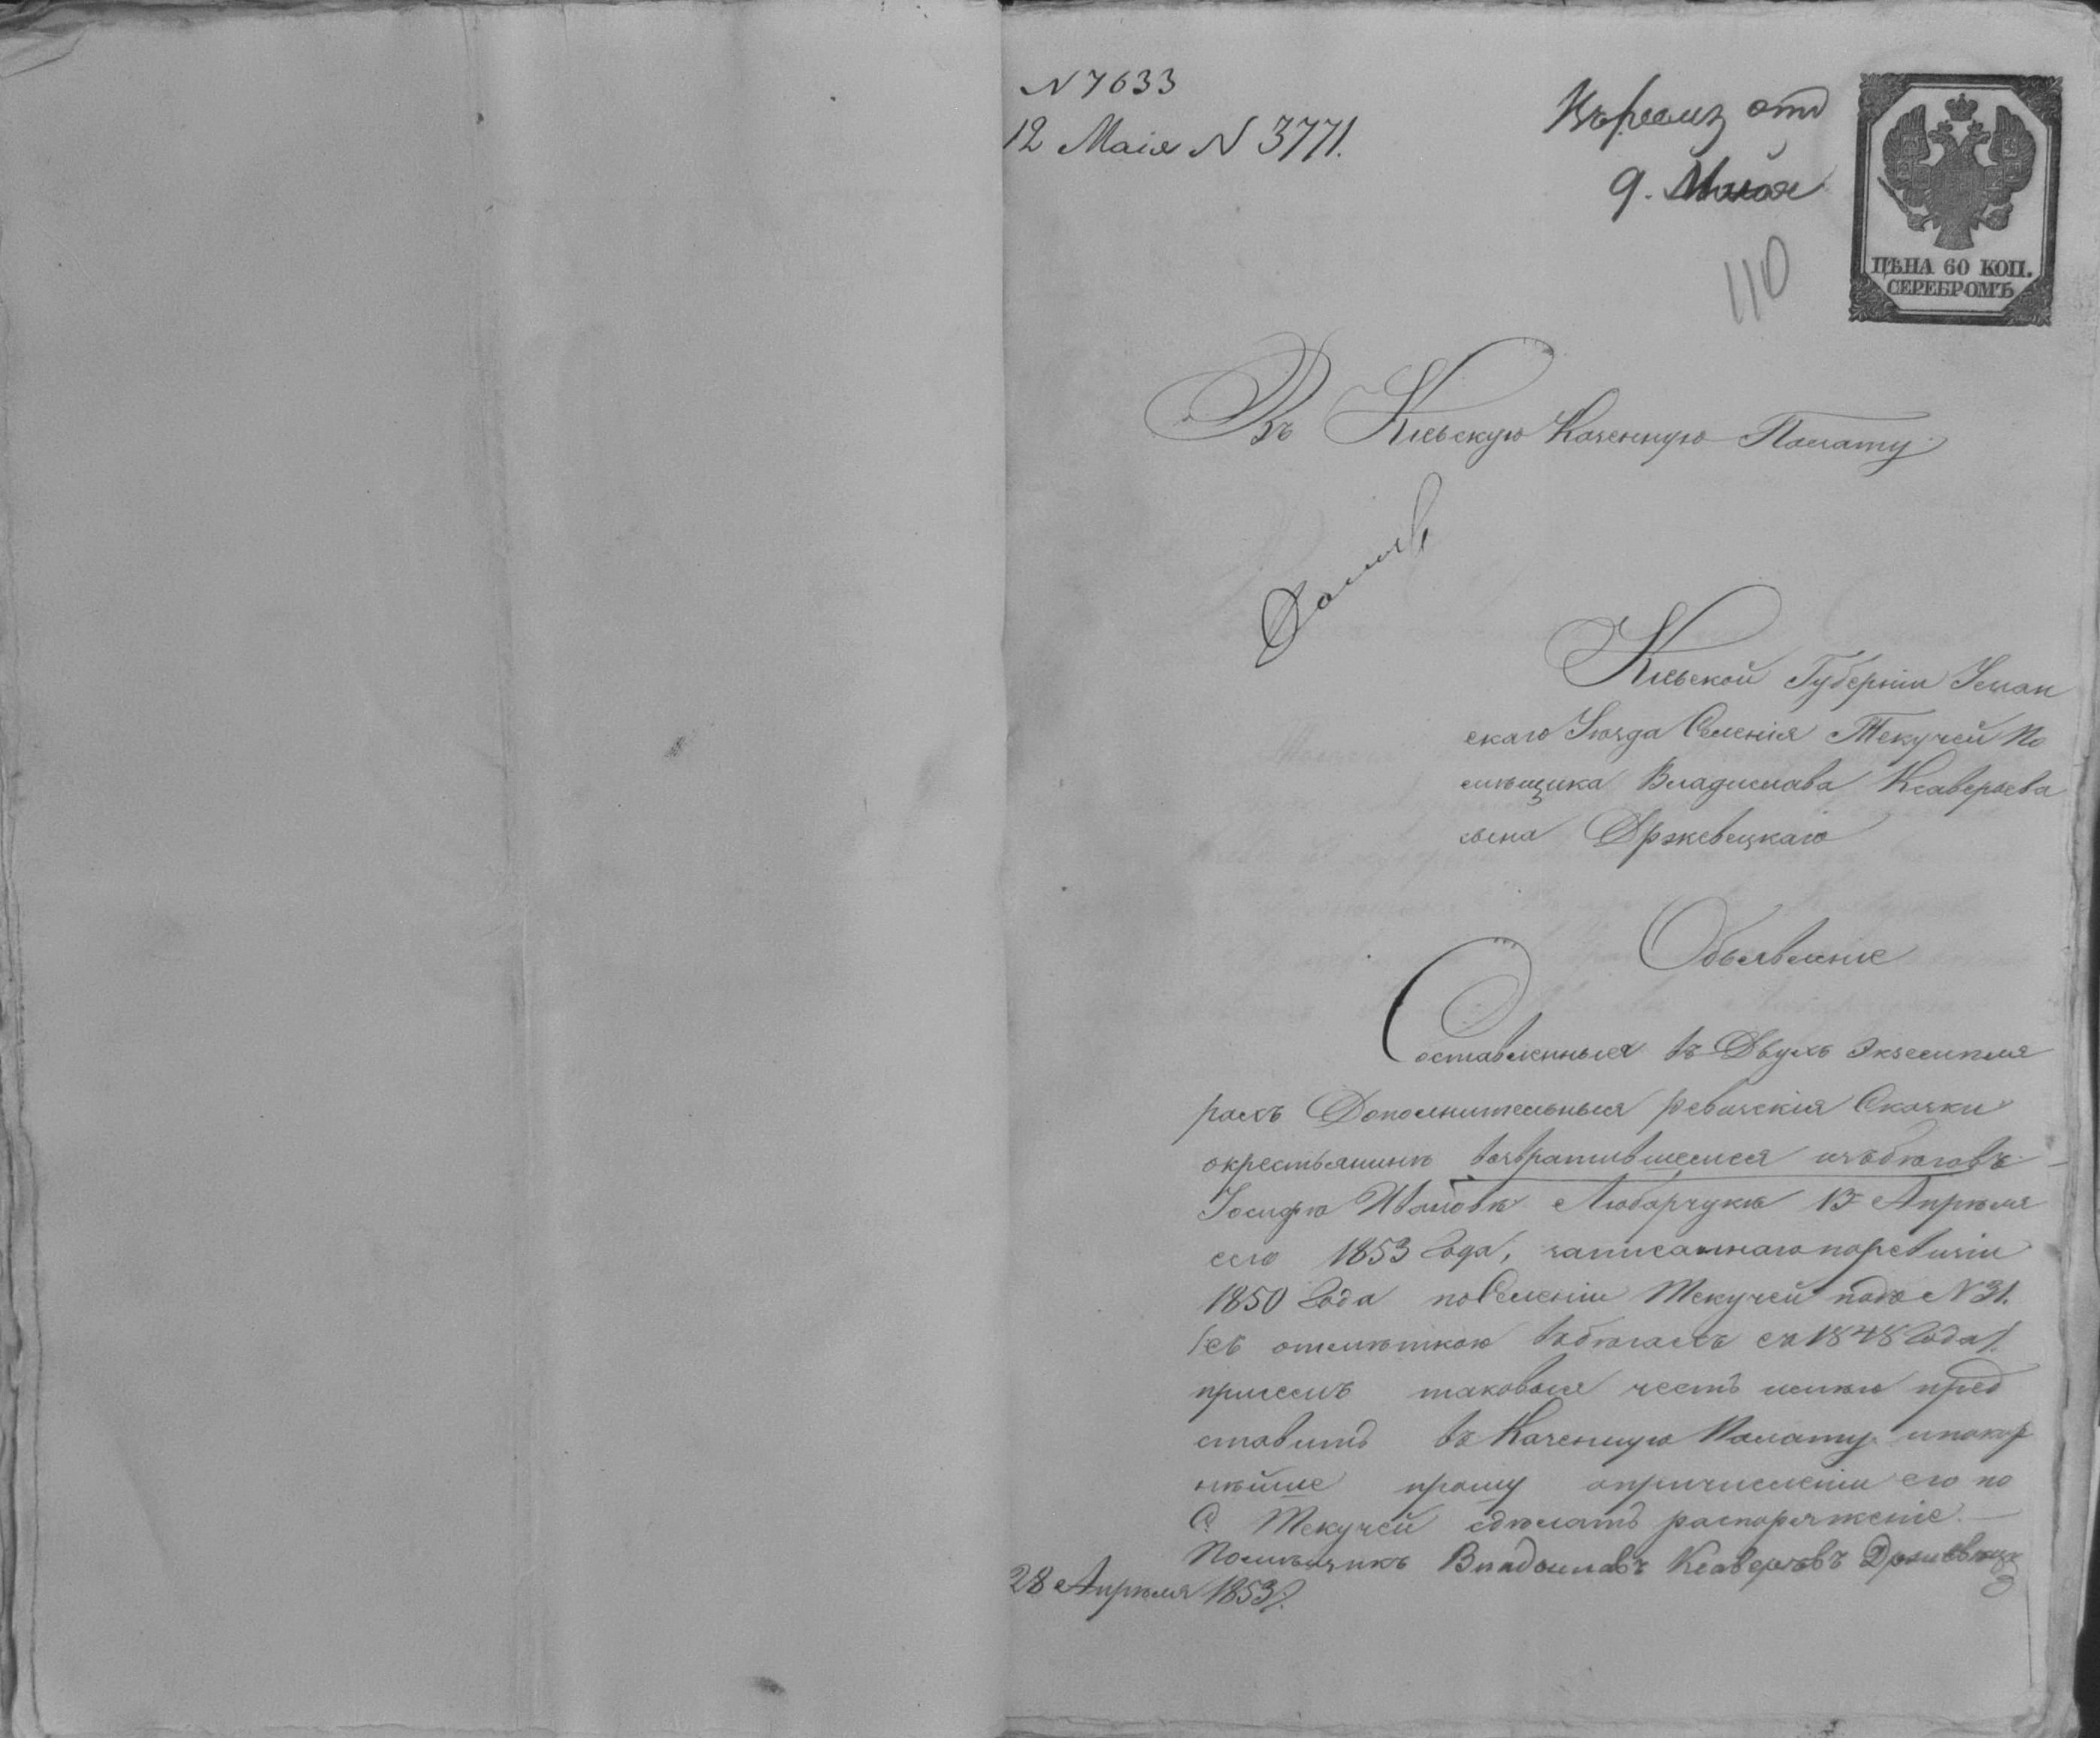 N 7633
12 Маія N 3771.
Къ ревиз отд
9. Маія
110
ЦѢНА 60 КОП.
СЕРЕБРОМЪ
Въ Кіевскую Казенную Палату
Кіевской Губерніи Уман
скаго Уѣзда Селенія Текучей По
мѣщика Владислава Ксаверьева
сына Држевецкаго
Объявленіе
Составленныя въ Двухъ Экземпля
рахъ Дополнительныя ревизскія Сказки
окрестьянинѣ возвратившемся изъбѣговъ
Іосифѣ Ивановѣ Люборчукѣ 13 Апрѣля
сего 1853 Года, записаннаго поревизіи
1850 Года поСеленіи Текучей подъ N 31.
/съ отмѣткою вбѣгахъ съ 1848 Года/.
присемъ таковые честь имѣю пред
ставить въ Казенную Палату ипокор
нѣйше прошу опричисленіи его по
С. Текучей сдѣлать распоряженіе.
Помѣщикъ Владиславъ Ксаверьевъ
28 Апрѣля 1853 г.